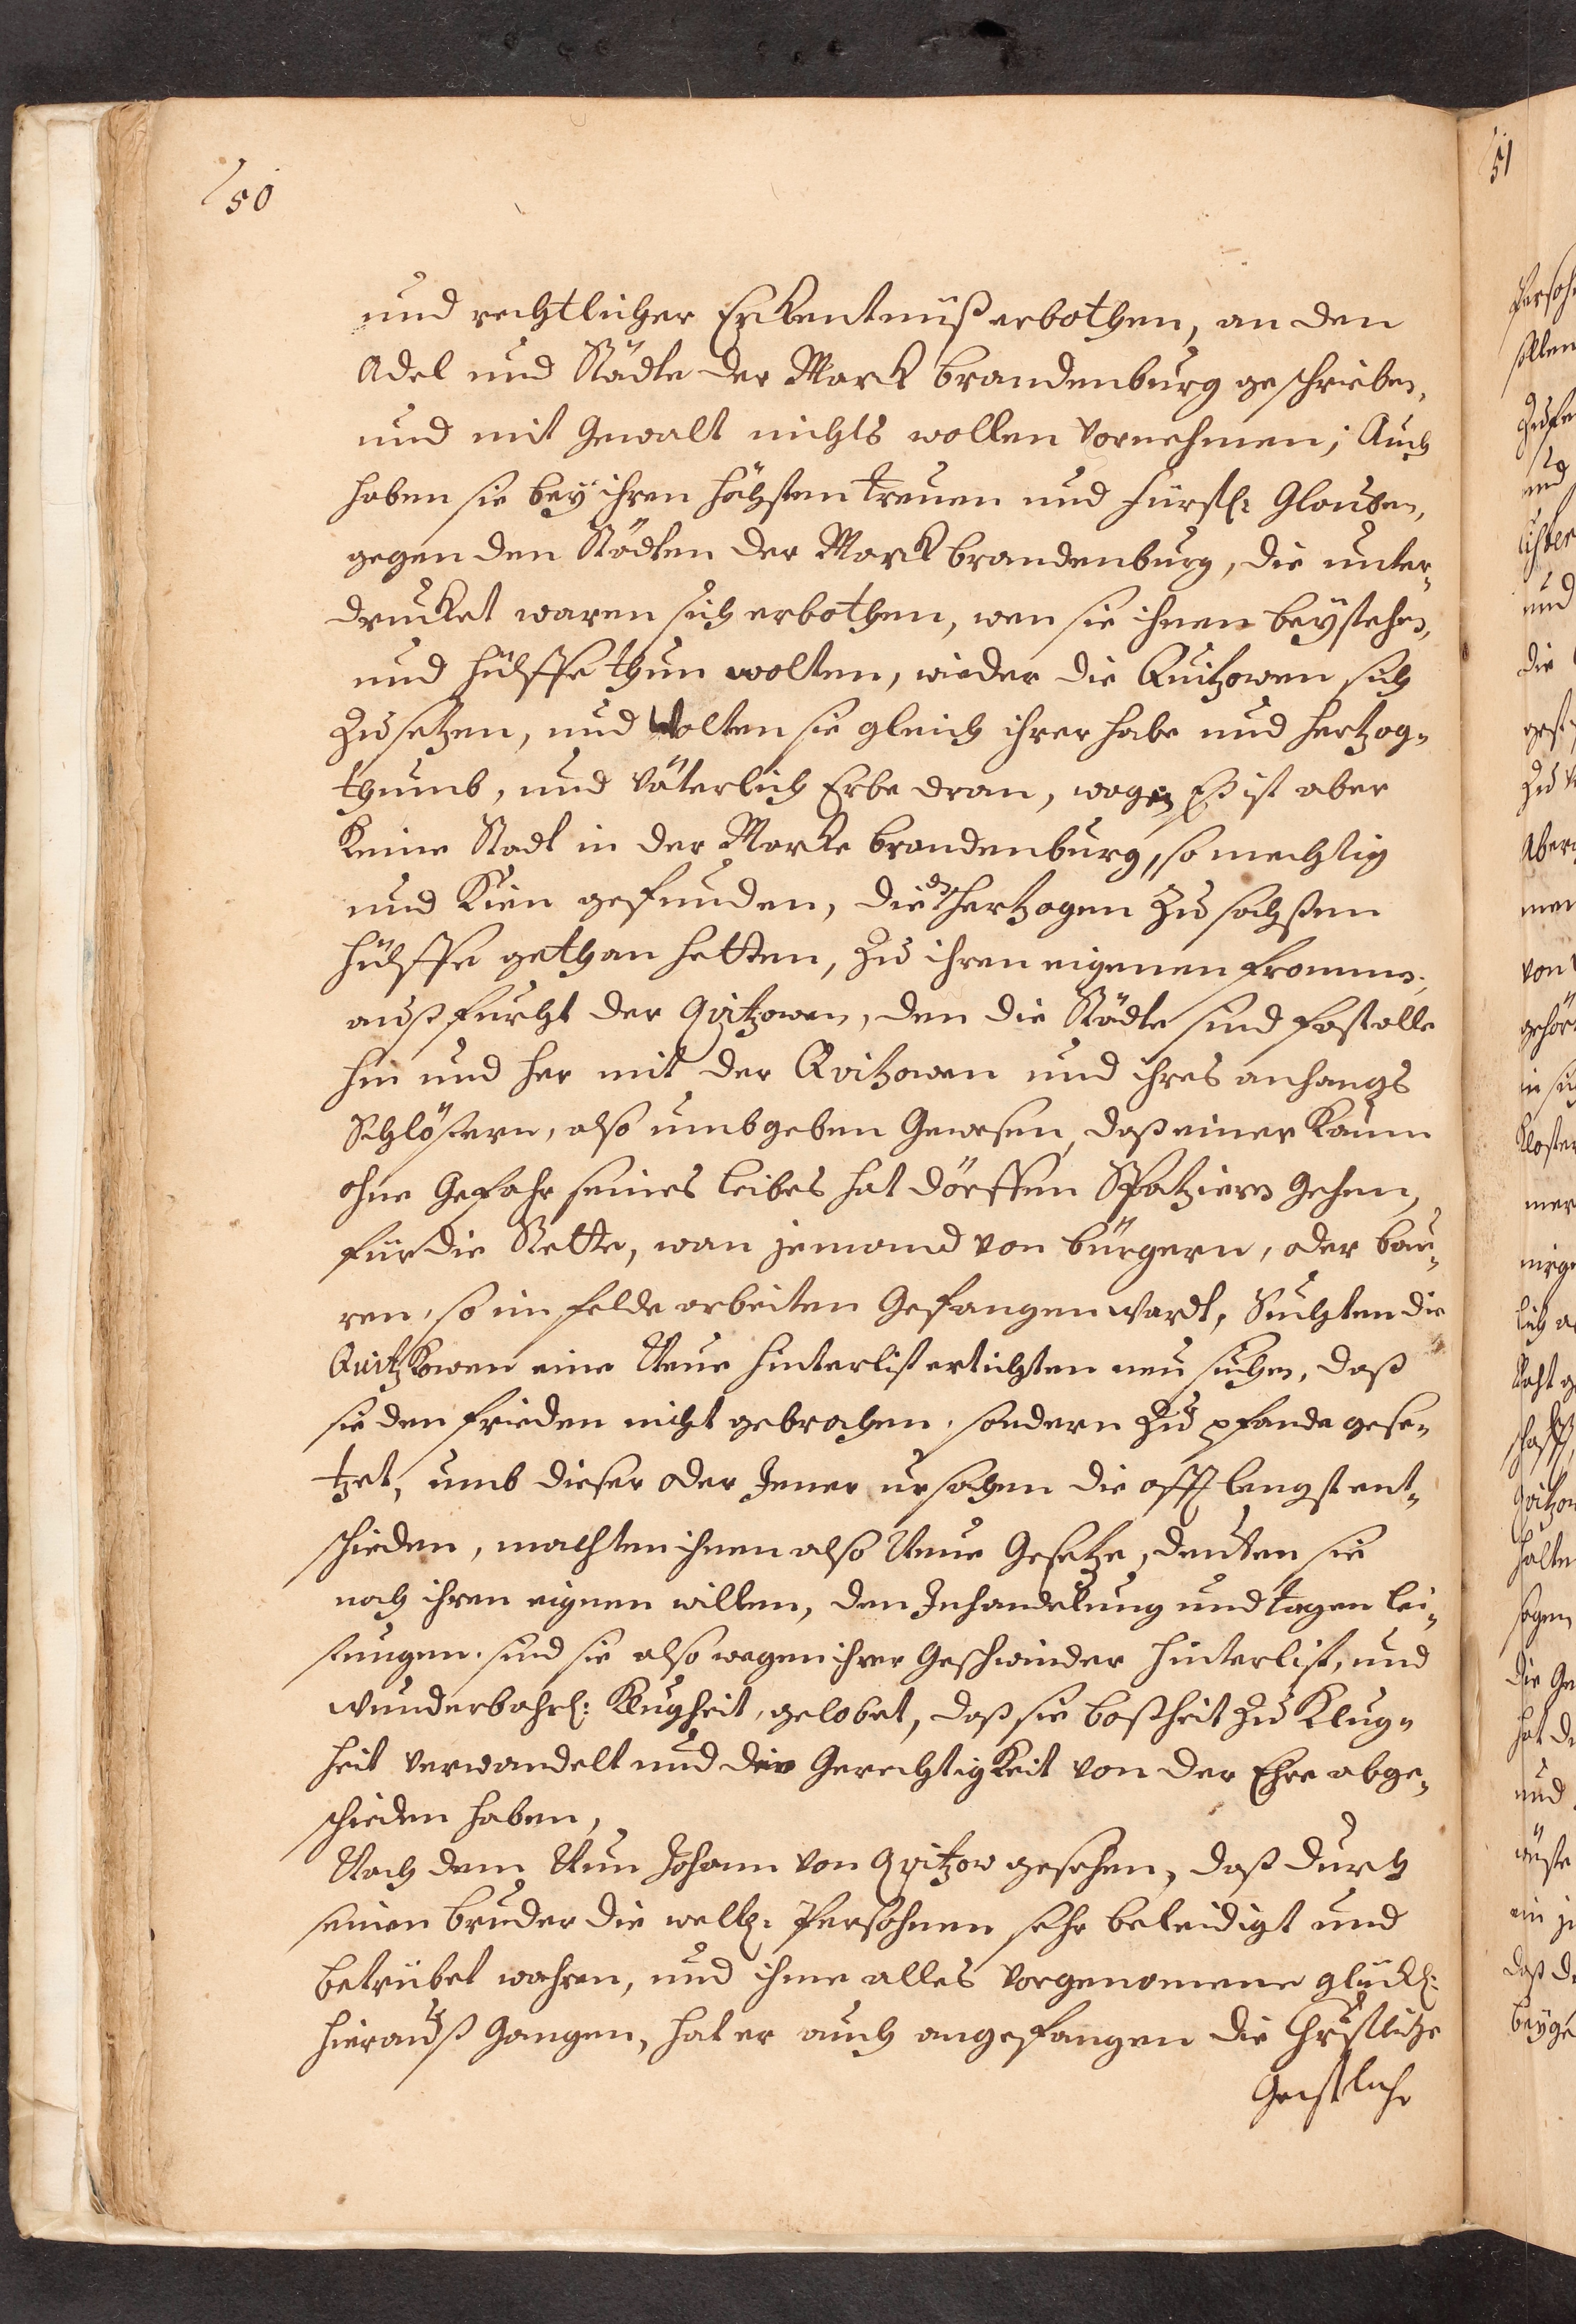 50
und rechtlicher Erkentnüß erbothen, an den
Adel und Städte der Marck brandenburg geschrieben,
und mit Gewalt nichts wollen vornehmen; Auch
haben sie beÿ ihren höchsten treuen und fürstl: Glauben,
gegen den Städten der Marck brandenburg, die unter„
drucket waren sich erbothen, wen sie ihnen beÿstehen,
und hülffe thun wolten, wieder die Quitzowen sich
zu setzen, und Wolten sie gleich ihrer habe und hertzog„
thumb, und väterlich Erbe dran, wagen Eß ist aber
keine Stadt in der Marcke brandenburg, so mechtig
und Kün gefunden, die hertzogen zu sachssen
hülffe gethan hetten, zu ihren eigenen frommen,
auß furcht der Qvitzowen, den die Städte sind fast alle
hin und her mit der Qvitzowen und ihres anhangs
Schlössern, also umbgeben Gewesen, daß einer kaum
ohne Gefahr seines leibes hat dörffen Spatzieren Gehen,
für die Stette, wan jemand von bürgern, oder bau„
ren, so im felde arbeiten Gefangen Wardt, Suchten die
Quitzkowen eine Neue hinterlist ertichten neu suchen, daß
sie den frieden nicht gebrochen, sondern zu pfande gese„
tzet, umb dieser oder Jener ursachen die offt lengst ent„
schieden, machten ihnen also Neue Gesetze, deuten sie
nach ihren eignen willen, den Inhandelung und tagen lei„
stungen. sind sie also wegen ihrer Geschwinder hinterlist, und
wunderbahrl: Klugheit, gelobet, daß sie boßheit zu Klug„
heit verwandelt und die Gerechtigkeit von der Ehre abge„
schieden haben,
Nach dem Nun Johann von Qvitzow gesehen, daß durch
seinen bruder die weltl: Persohnen sehr beleidigt und
betrübet wahren, und ihme alles vorgenomene glückl:
hierauß Gangen, hat er auch angefangen die Christliche
Geistliche
51